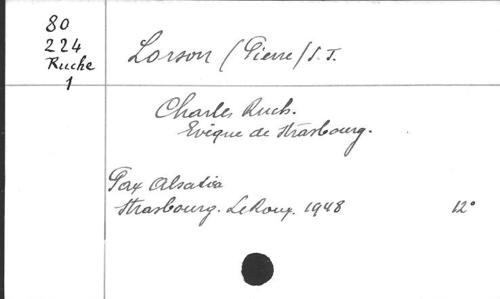 80
224
Ruche
1
Lorson (Pierre) S.T.
Charles Ruch.
Evêque de Strasbourg.
Pax Alsatia
Strasbourg. Le Roux. 1948 12°